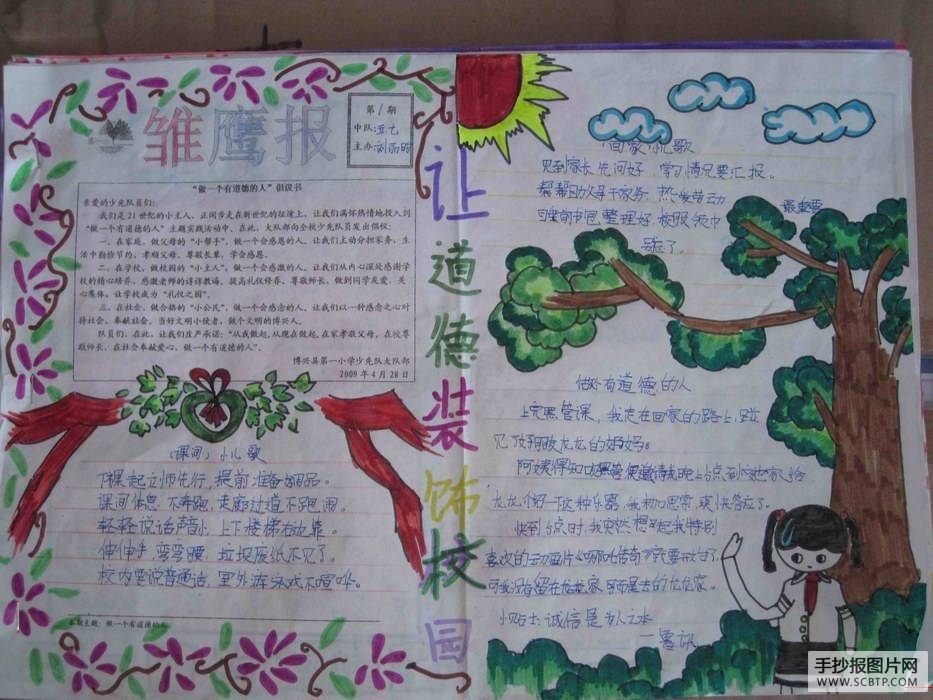 雏鹰报
第1期
中队:五七
主办:刘雨时
“做一个有道德的人”倡议书
亲爱的少先队员们:
我们是21世纪的小主人,正阔步走在新世纪的征途上,让我们满怀热情地投入到
“做一个有道德的人”主题实践活动中,在此,大队部向全校少先队员发出倡仪:
一、在家庭,做父母的“小帮手”,做一个会感恩的人,让我们主动分担家务,生
活中勤俭节约,孝顺父母,尊敬长辈,学会感恩。
二、在学校,做校园的“小主人”,做一个会感激的人,让我们从内心深处感谢学
校的精心培养,感激老师的谆谆教诲,提高礼仪修养,尊敬师长,做到同学友爱,关
心集体,让学校成为“礼仪之园”。
三、在社会,做合格的“小公民”,做一个会感念的人,让我们以一种感念之心对
待社会,奉献社会,当好文明小使者,做个文明的博兴人。
队员们,在此,让我们庄严承诺:“从我做起,从现在做起,在家孝敬父母,在校尊
敬师长,在社会奉献爱心,做一个有道德的人”。
博兴县第一小学少先队大队部
2009年4月28日
(课间)小儿歌
下课起立师先行,提前准备好用品。
课间休息不奔跑,走廊过道不跑闹。
轻轻说话声音小,上下楼梯右边靠。
伸伸手,弯弯腰,垃圾废纸不见了。
校内要说普通话,里外游戏不喧哗。
本期主题:做一个有道德的人
让道德装饰校园
回家小儿歌
见到家长先问好,学习情况要汇报。
帮帮助人干家务,热爱劳动
最重要
书包整理好,校服领巾
做个有道德的人
上完黑管课,我走在回家的路上,路
见了阿波龙龙的妈妈。
龙龙
这种乐器,我初心思常,爽快答应了。
快到6点时,我突然想起我特别
喜欢的动画片《哪吒传奇》就要开始了,
小贴士:诚信是为人之本
手抄报图片网
WWW.SCBTP.COM